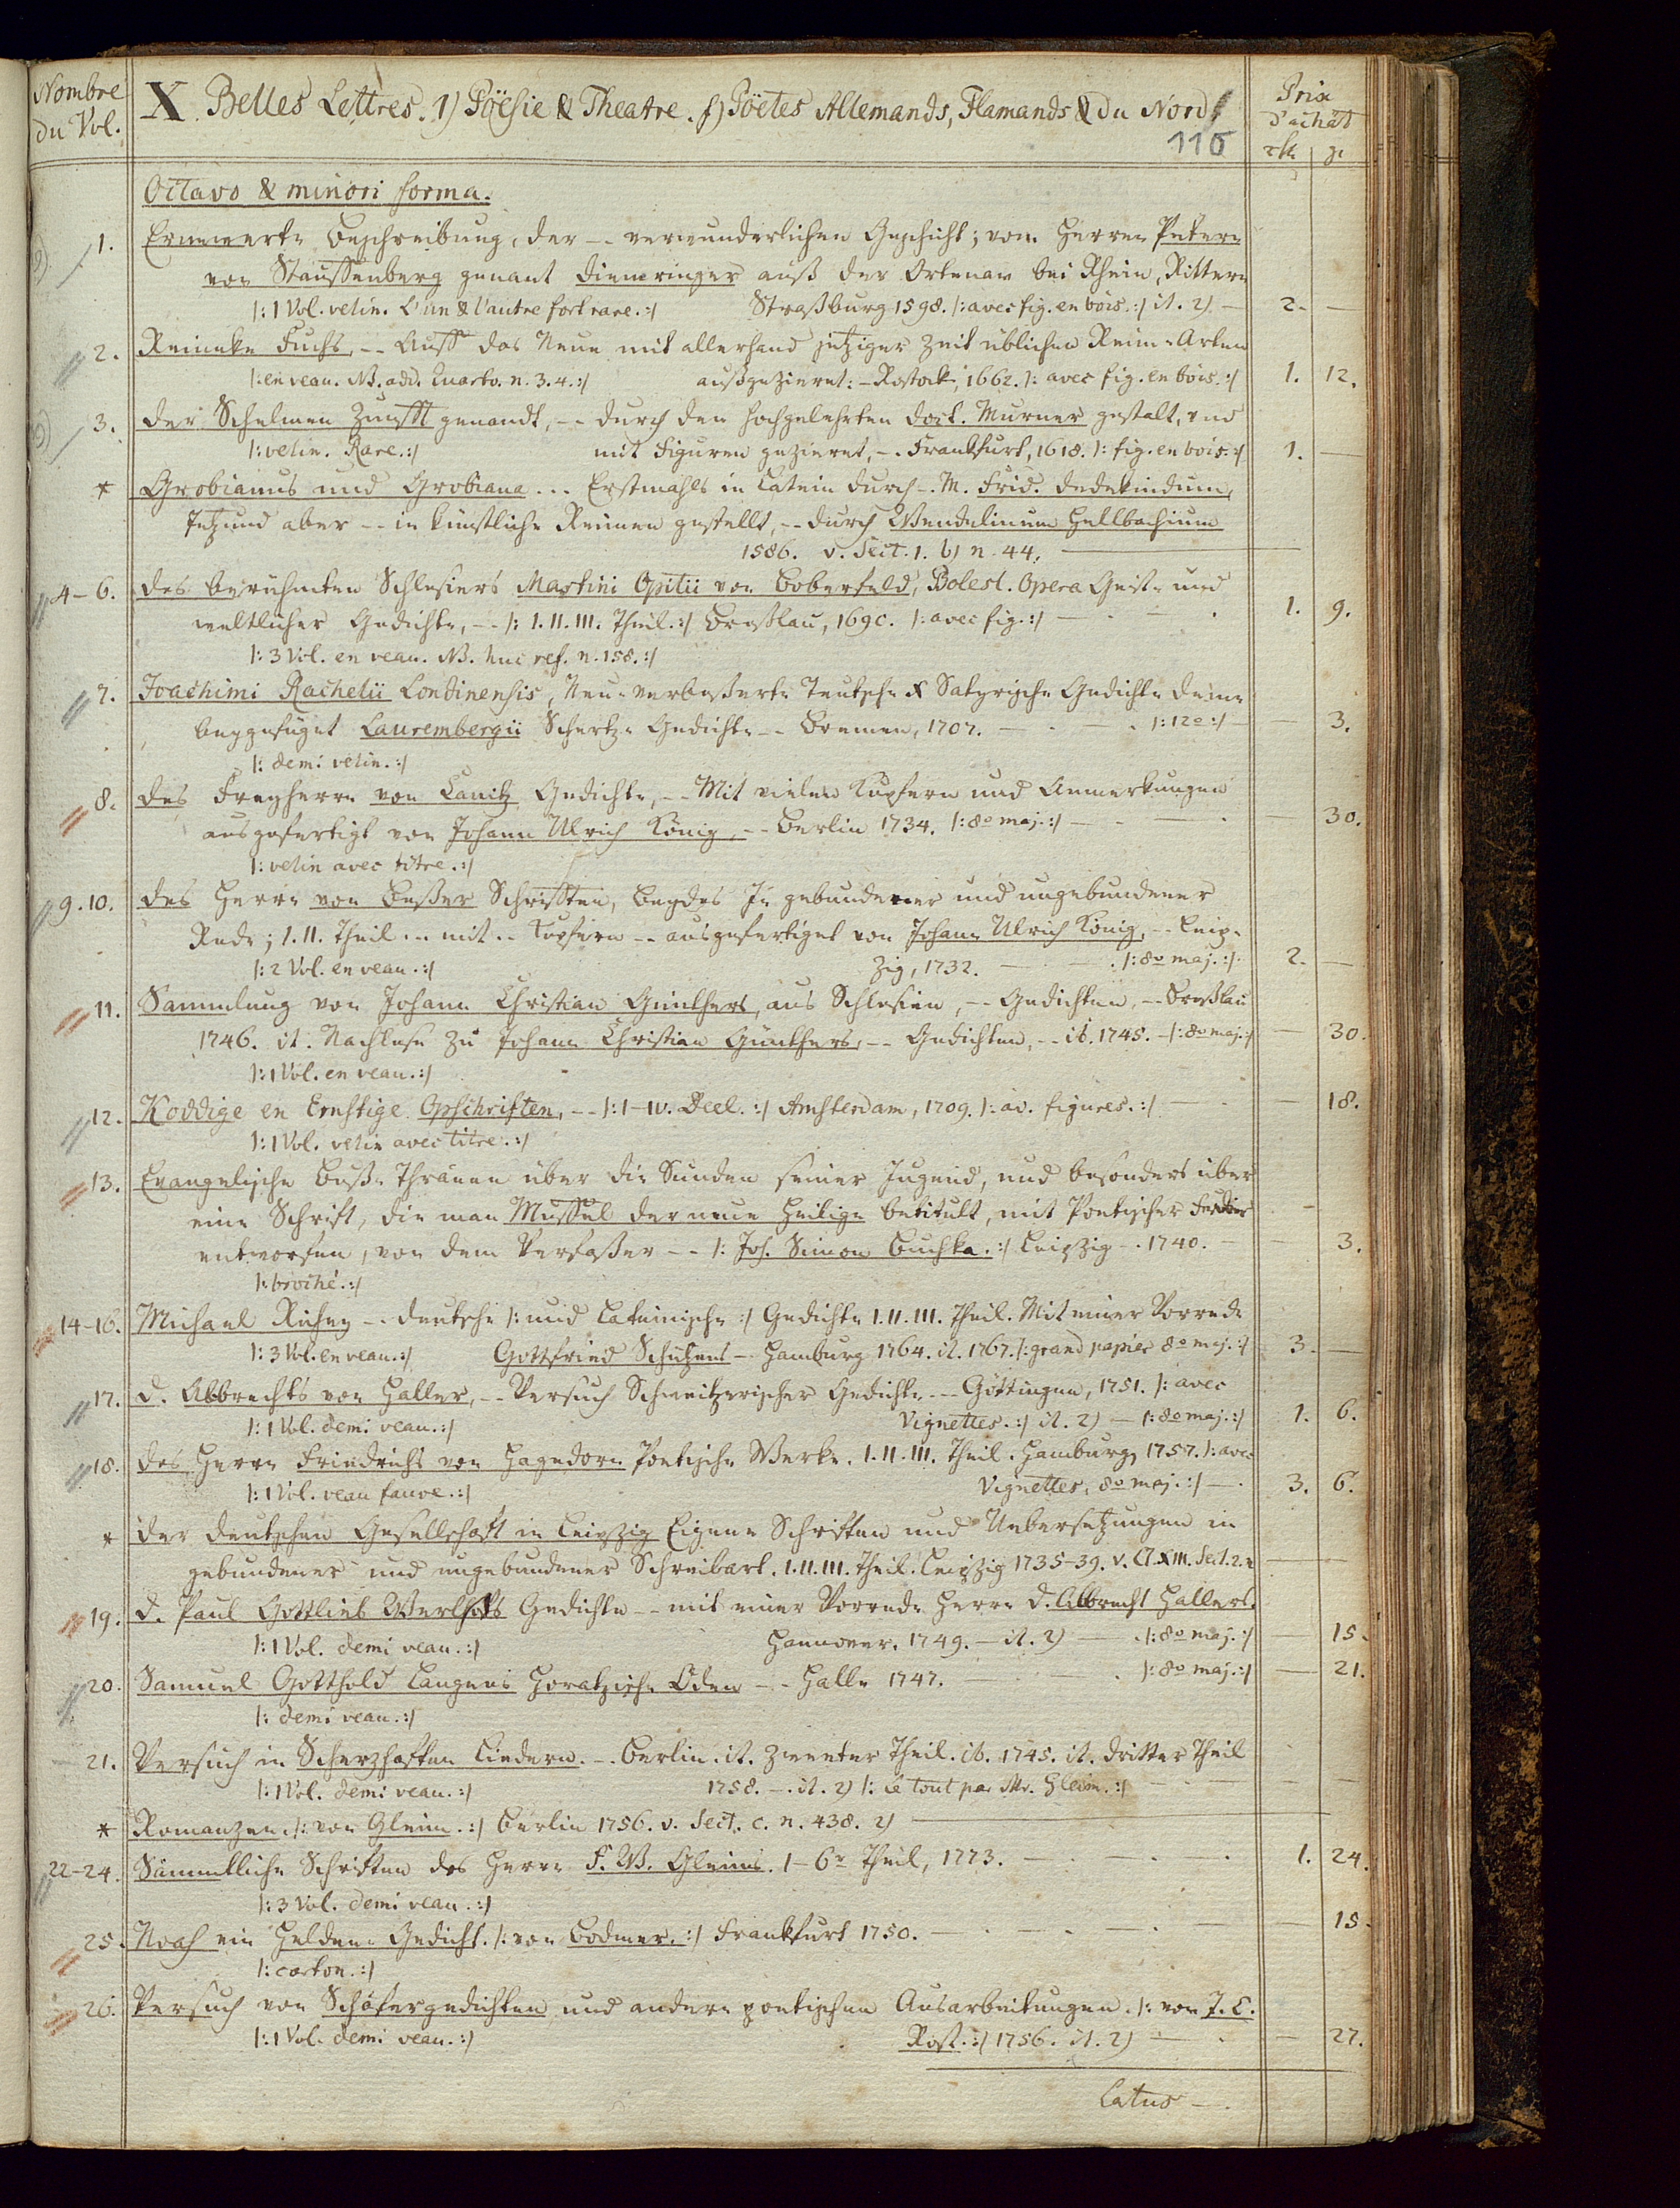 Nombre du Vol.
X. Belles Lettres. 1) Pöësie & Theatre. f) Pöetes Allemands, Flamands & du Nord
Prix d'achât
rth. gr.
116
Octavo & minori forma.
1. Ernewerte Beschreibung, der -- verwunderlichen Geschicht; vom Herren Petern
von Stauffenberg genant Diemringer auß der Ortenaw bei Rhein, Rittern
|: 1 Vol. velin. L'un & l'autre fort rare. :| Straßburg 1598. |: avec fig. en bois. :| it. 2) — 2. —
2. Reineke Fuchs, -- Auff das Neue mit allerhand jetziger Zeit üblichen Reim-Arten
|: en veau. NB. add. Quarto. n. 3. 4. :| außgezieret: - Rostock, 1662. |: avec fig. en bois. :| 1. 12.
3. Der Schelmen Zunfft genandt, -- durch den hochgelehrten Doct. Murner gestalt, und
|: velin. Rare. :| mit Figuren gezieret, -- Frankfurt, 1618. |: fig. en bois. :| 1. —
* Grobianus und Grobiana ... Erstmahls in Latein durch -- M. Frid. Dedekindum,
Jetzund aber -- in künstliche Reimen gestellt, -- durch Wendelinum Hellbachium
1586. v. Sect. 1. b) n. 44. —
4-6. Des berühmten Schlesiers Martini Opitii von Boberfeld, Bolesl. Opera Geist- und
weltlicher Gedichte, -- |: I. II. III. Theil. :| Breßlau, 1690. |: avec fig. :| — 1. 9.
|: 3 Vol. en veau. NB. huc ref. n. 158. :|
7. Joachimi Rachelii Londinensis, Neu-verbeßerte Teutsche X Satyrische Gedichte deme
beygefüget Laurembergii Schertz-Gedichte -- Bremen, 1707. — |: 12o :| — 3.
|: demi velin. :|
8. Des Freyherrn von Canitz Gedichte, -- Mit vielen Kupfern und Anmerkungen
ausgefertigt von Johann Ulrich König, -- Berlin 1734. |: 8o maj. :| — 30.
|: velin avec titre. :|
9. 10. Des Herrn von Beßer Schrifften, Beydes In gebundener und ungebundener
Rede; I. II. Theil -- mit -- Kupfern -- ausgefertiget von Johann Ulrich König, -- Leip-
|: 2 Vol. en veau. :| zig, 1732. — |: 8o maj. :| 2. —
11. Sammlung von Johann Christian Günthers, aus Schlesien, -- Gedichten, -- Breßlau
1746. it. Nachlese zu Johann Christian Günthers, -- Gedichten, -- ib. 1745. - |: 8o maj. :| — 30.
|: 1 Vol. en veau. :|
12. Koddige en Ernstige Opschriften, -- |: I-IV. Deel. :| Amsterdam, 1709. |: av. figures. :| — 18.
|: 1 Vol. velin avec titre. :|
13. Evangelische Buß-Thränen über die Sünden seiner Jugend, und besonders über
eine Schrift, die man Muffel der neue Heilige betitult, mit Poetischer Feder
entworfen, von dem Verfaßer -- |: Joh. Simon Buchka. :| Leipzig -- 1740. — 3.
|: broché. :|
14-16. Michael Richey -- deutsche |: und Lateinische :| Gedichte I. II. III. Theil. Mit einer Vorrede
|: 3 Vol. en veau. :| Gottfried Schützens -- Hamburg 1764. it. 1767. |: grand papier 8o maj. :| 3. —
17. D. Albrechts von Haller, -- Versuch Schweitzerischer Gedichte -- Göttingen, 1751. |: avec
|: 1 Vol. demi veau. :| Vignettes. :| it. 2) — |: 8o maj. :| 1. 6.
18. Des Herrn Friedrichs von Hagedorn Poetische Werke. I. II. III. Theil. Hamburg 1757. |: avec
|: 1 Vol. veau fauve. :| Vignettes, 8o maj. :| — 3. 6.
* Der deutschen Gesellschaft in Leipzig Eigene Schriften und Uebersetzungen in
gebundener und ungebundener Schreibart. I. II. III. Theil. Leipzig 1735-39. v. Cl. XIII. Sect. 2. —
19. D. Paul Gottlieb Werlhofs Gedichte -- mit einer Vorrede Herrn D. Albrecht Hallers.
|: 1 Vol. demi veau. :| Hannover, 1749. — it. 2) — |: 8o maj. :| — 15.
20. Samuel Gotthold Langens Horatzische Oden -- Halle 1747. — |: 8o maj. :| — 21.
|: demi veau. :|
21. Versuch in Scherzhaften Liedern. -- Berlin. it. Zweeter Theil. ib. 1745. it. Dritter Theil
|: 1 Vol. demi veau. :| 1758. — it. 2) |: le tout par Mr. Gleim. :| —
* Romanzen. |: von Gleim. :| Berlin 1756. v. Sect. c. n. 438. 2) —
22-24. Sämmtliche Schriften des Herrn F. W. Gleims. 1-6r Theil, 1773. — 1. 24.
|: 3 Vol. demi veau. :|
25. Noah ein Helden-Gedicht. |: von Bodmer. :| Frankfurt 1750. — 15.
|: carton. :|
26. Versuch von Schäfergedichten und andern poetischen Ausarbeitungen. |: von J. C.
|: 1 Vol. demi veau. :| Rost. :| 1756. it. 2) — 27.
Latus —